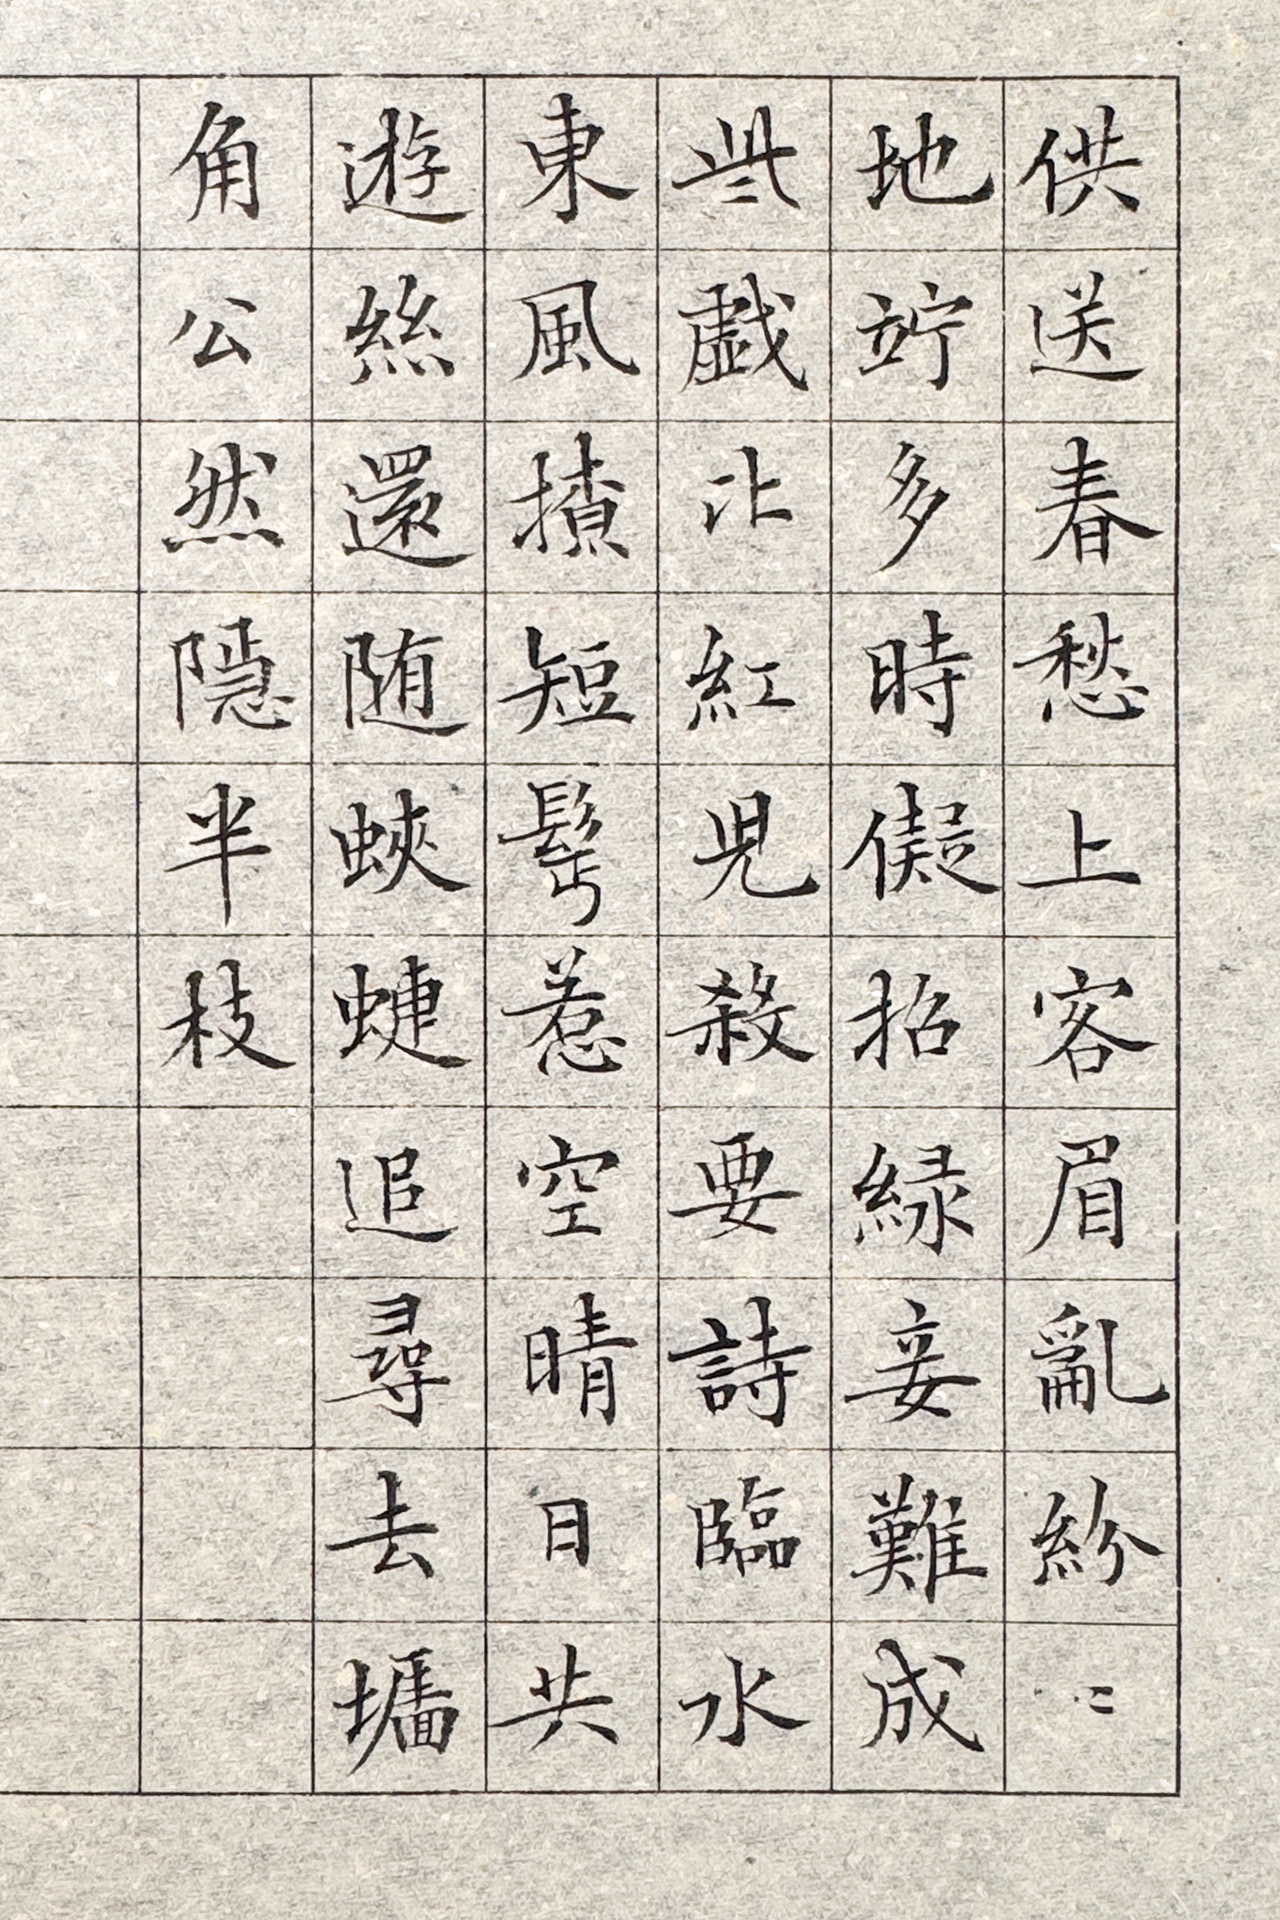 供送春愁上客眉亂紛〻
地竚多時儗招緑妾難成
些戯比紅児殺要詩臨水
東風撩短髩惹空晴日共
遊絲還随蛺蜨追尋去墻
角公然隱半枝